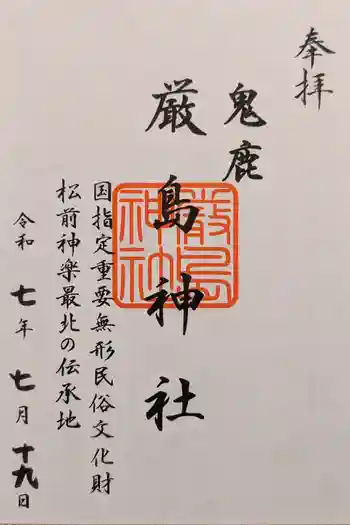 奉拝
鬼鹿
厳島神社
厳島神社
国指定重要無形民俗文化財
松前神楽最北の伝承地
令和七年七月十九日